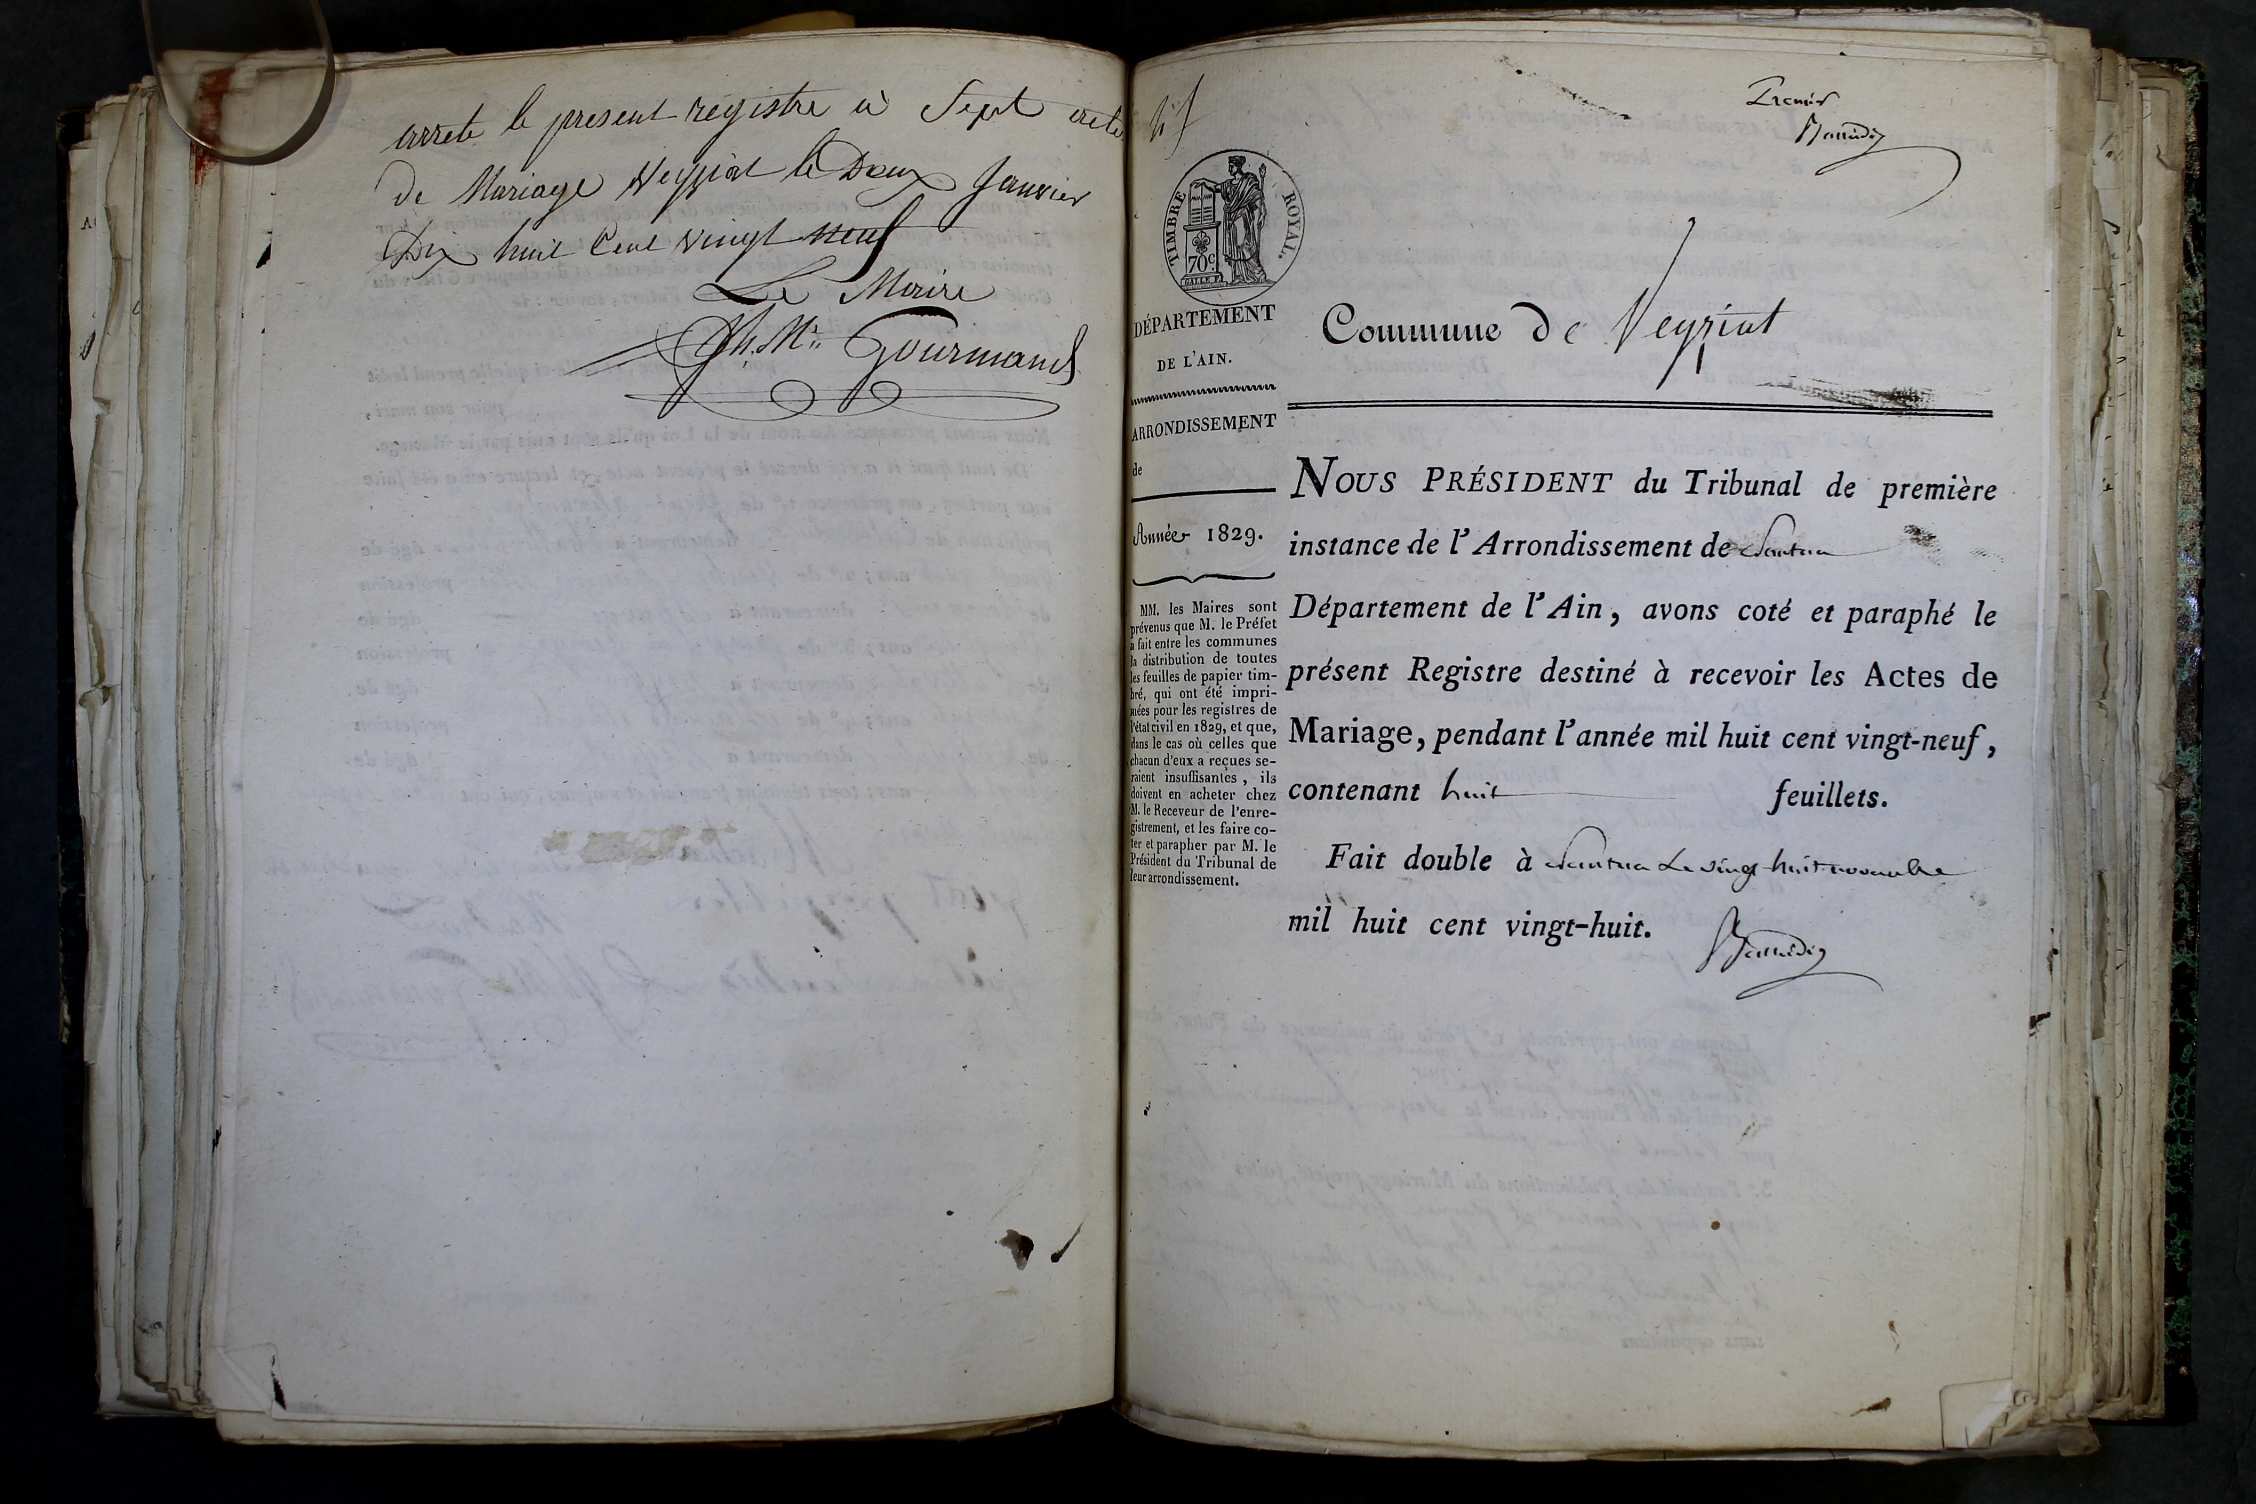 arrete le present registre a Sept acte
de Mariage Veyziat le Deux Janvier
Dix huit Cent vingt neuf
Le Maire
Jh. Mie Gourmand
Premier
TIMBRE ROYAL.
70c.
DÉPARTEMENT
DE L'AIN.
ARRONDISSEMENT
de
Année 1829.
MM. les Maires sont
prévenus que M. le Préfet
a fait entre les communes
la distribution de toutes
les feuilles de papier tim-
bré, qui ont été impri-
mées pour les registres de
l'état civil en 1829, et que,
dans le cas où celles que
chacun d'eux a reçues se-
raient insuffisantes, ils
doivent en acheter chez
M. le Receveur de l'enre-
gistrement, et les faire co-
ter et parapher par M. le
Président du Tribunal de
leur arrondissement.
Commune de Veyziat
NOUS PRÉSIDENT du Tribunal de première
instance de l'Arrondissement de Nantua
Département de l'Ain, avons coté et paraphé le
présent Registre destiné à recevoir les Actes de
Mariage, pendant l'année mil huit cent vingt-neuf,
contenant huit feuillets.
Fait double à Nantua Le vingt huit novembre
mil huit cent vingt-huit.